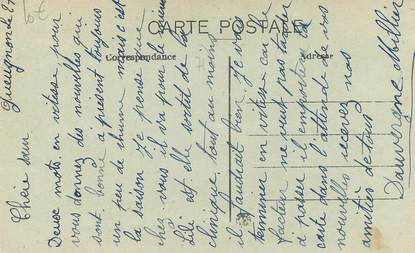 CARTE POSTALE
Correspondance
Adresse
Gueugnon le 27
Chère sœur
Deux mots en vitesse pour
vous donnez des nouvelles qui
sont bonne à présent toujours
un peu de rhume mais c'est
la saison. Je pense que
chez vous il va pour le
Lili est elle sortit de la
clinique tout au moins
il faudrait bien. Je vais
terminer en vitesse car le
facteur ne veut pas tarder
à passer il emportera la
carte dans l'attend de vos
nouvelles recevez nos
amitiés de tous
Dauvergne Millier